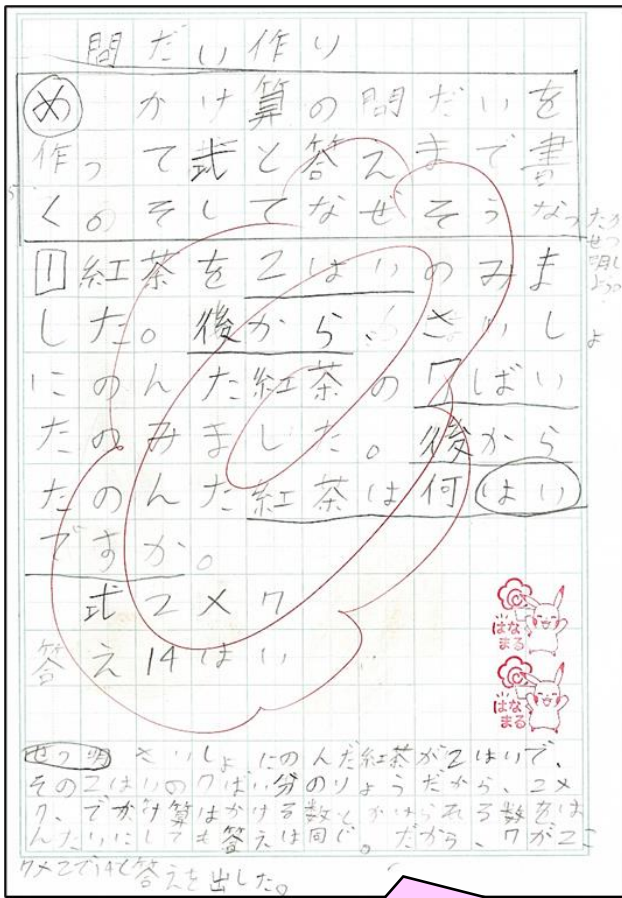 問だい作り
め かけ算の問だいを
作って式と答えまで書
くのそしてなぜそうなっ
たかせつ明しよう
1 紅茶を2はいのみま
した。後から、さいしょ
にのんだ紅茶の7ばい
たのみました。後から
たのんだ紅茶は何はい
ですか。
式2×7
答え14はい
はなまる
はなまる
せつ明 さいしょにのんだ紅茶が2はいで、
その2はいの7ばい分のりょうだから、2×
7、でかけ算はかける数とかけられる数をは
んたいにしても答えは同じ。だから、7が2こ
7×2で14と答えを出した。